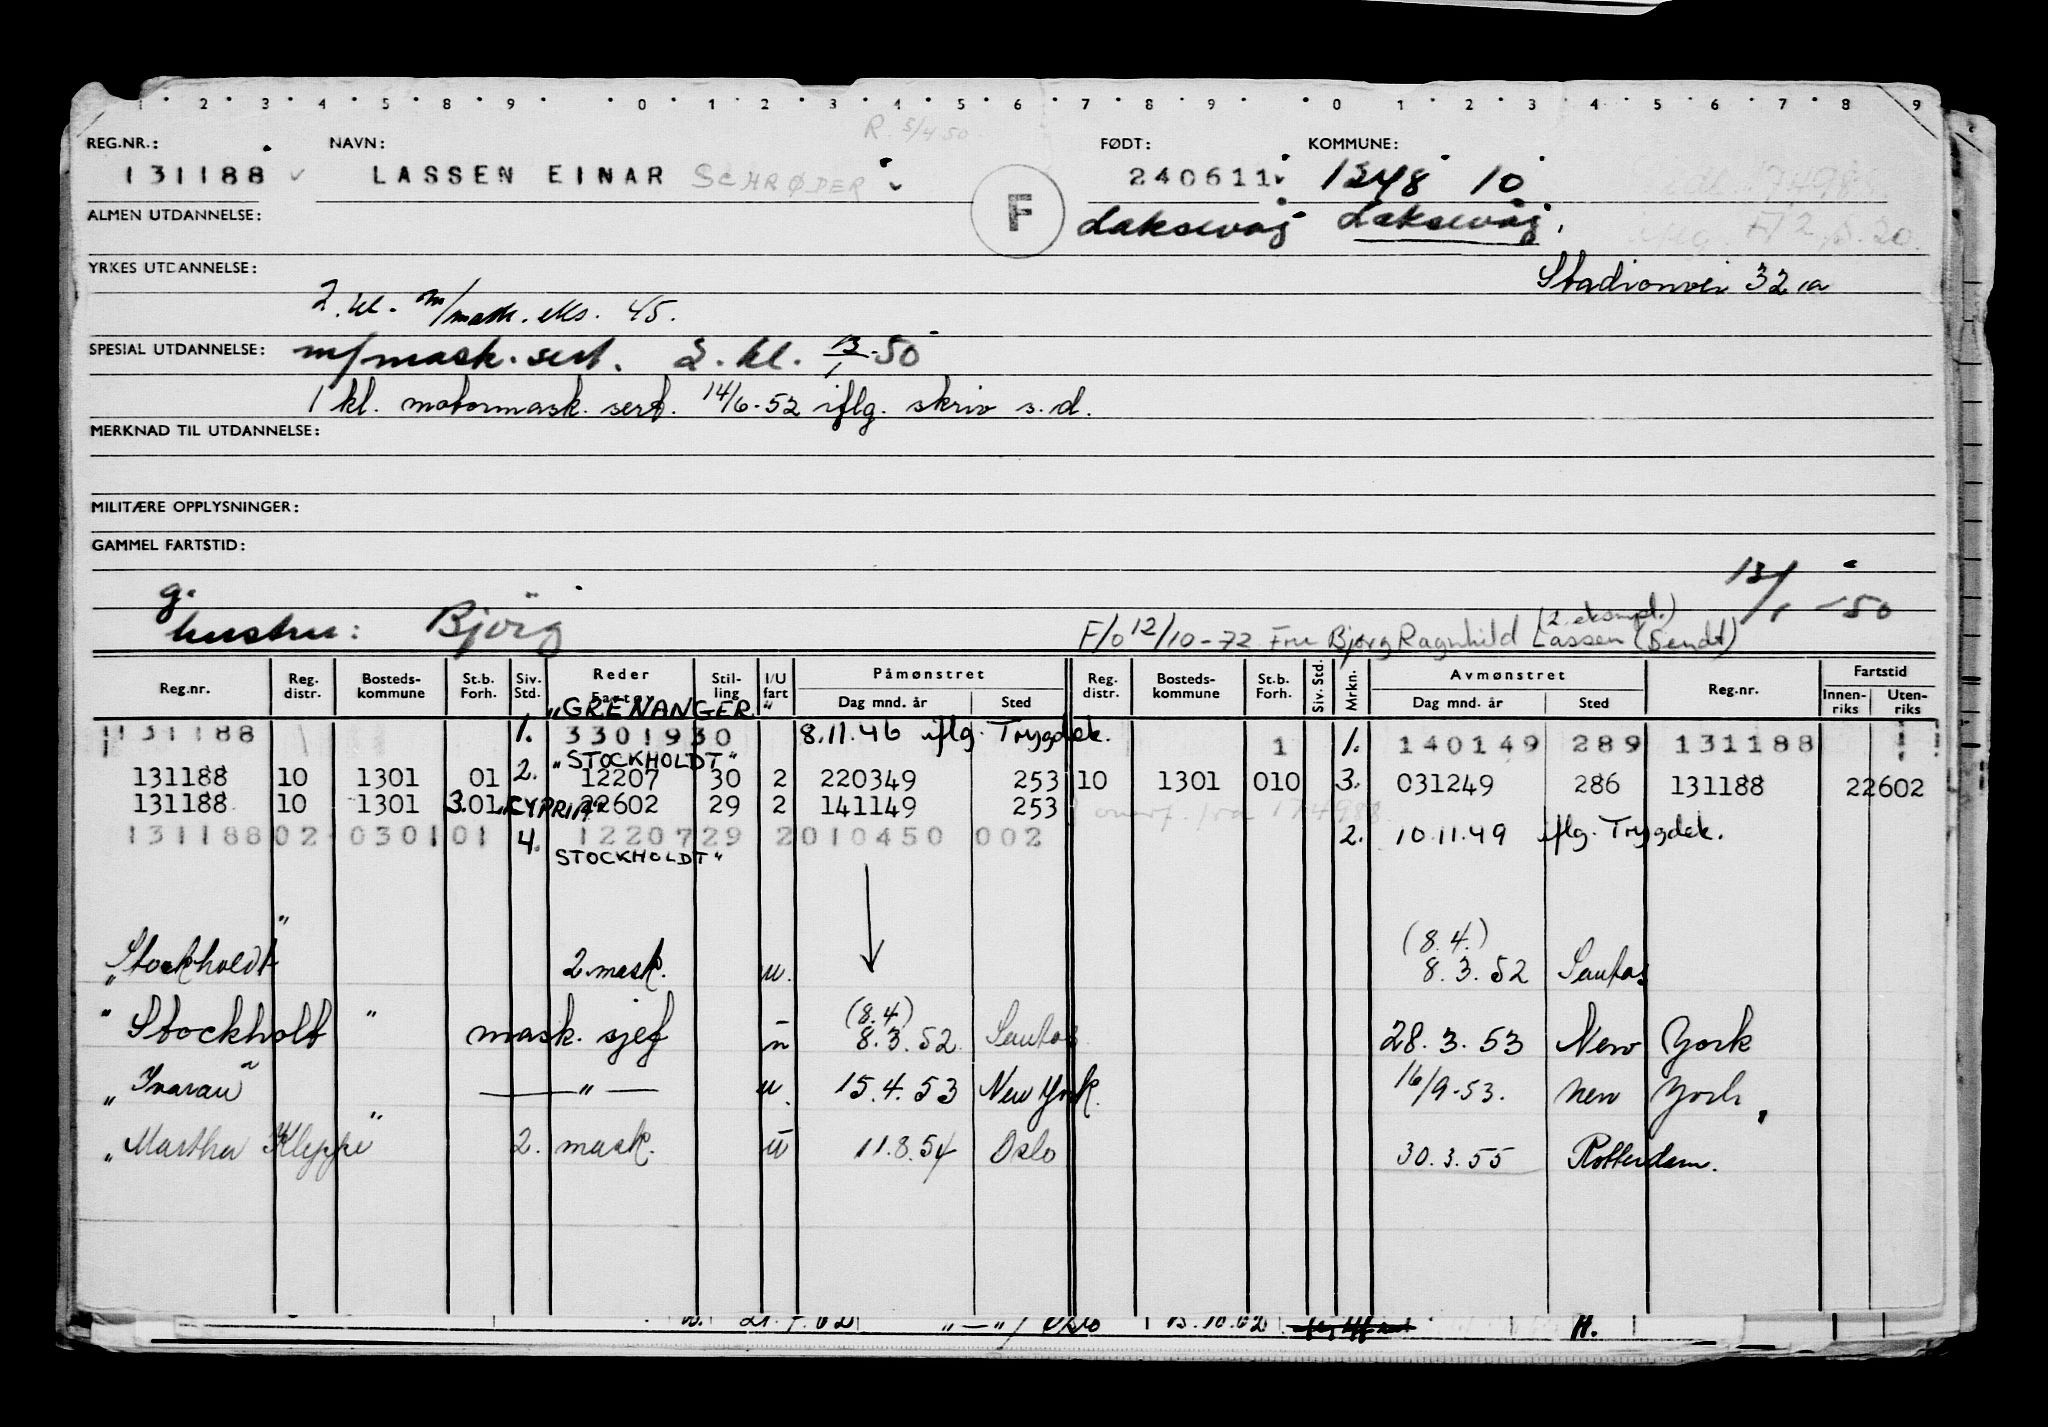 1 2 3 4 5 8 9 0 1 2 3 4 5 6 7 8 9 0 1 2 3 4 5 6 7 8 9
R. 5/4 50
REG.NR.: NAVN: FØDT: KOMMUNE:
131188 LASSEN EINAR SCHRØDER 240611 1248 10
F
ALMEN UTDANNELSE: Laksevåg Laksevåg.
YRKES UTDANNELSE: Stadionvei 32a
2. kl. m/mask. eks. 45.
SPESIAL UTDANNELSE: m/mask. sert. 2. kl. 13/1-50
1 kl. motormask. sert. 14/6-52 iflg. skriv s.d.
MERKNAD TIL UTDANNELSE:
MILITÆRE OPPLYSNINGER:
GAMMEL FARTSTID:
13/1-50
g.
hustru: Bjørg
(2. eksmpl.)
F/o 12/10-72 Fru Bjørg Ragnhild Lassen (Sendt)
Reg.nr. Reg. distr. Bosteds- kommune St.b. Forh. Siv. Std. Reder Fartøy Stil- ling I/U fart Påmønstret Dag mnd. år Sted Reg. distr. Bosteds- kommune St.b. Forh. Siv. Std. Mrkn. Avmønstret Dag mnd. år Sted Reg.nr. Fartstid Innen- riks Uten- riks
"GRENANGER"
131188 1. 3301930 8.11.46 iflg. Trygdek. 1 1. 140149 289 131188
"STOCKHOLDT"
131188 10 1301 01 2. 12207 30 2 220349 253 10 1301 010 3. 031249 286 131188 22602
131188 10 1301 3. 01 "CYPRIA" 22602 29 2 141149 253 overf. fra 174988
131188 02 0301 01 4. 12207 29 2 010450 002 2. 10.11.49 iflg. Trygdek.
STOCKHOLDT"
(8.4.)
"Stockholdt" 2. mask. u. 8.3.52 Santos
(8.4)
"Stockholt" mask. sjef u 8.3.52 Santos 28.3.53 New York
"Ivaran" — " — u. 15.4.53 New York. 16/9-53. New York.
"Martha Kleppe" 2. mask. u 11.8.54 Oslo 30.3.55 Rotterdam.
"—" / Oslo 13.10.62 H.